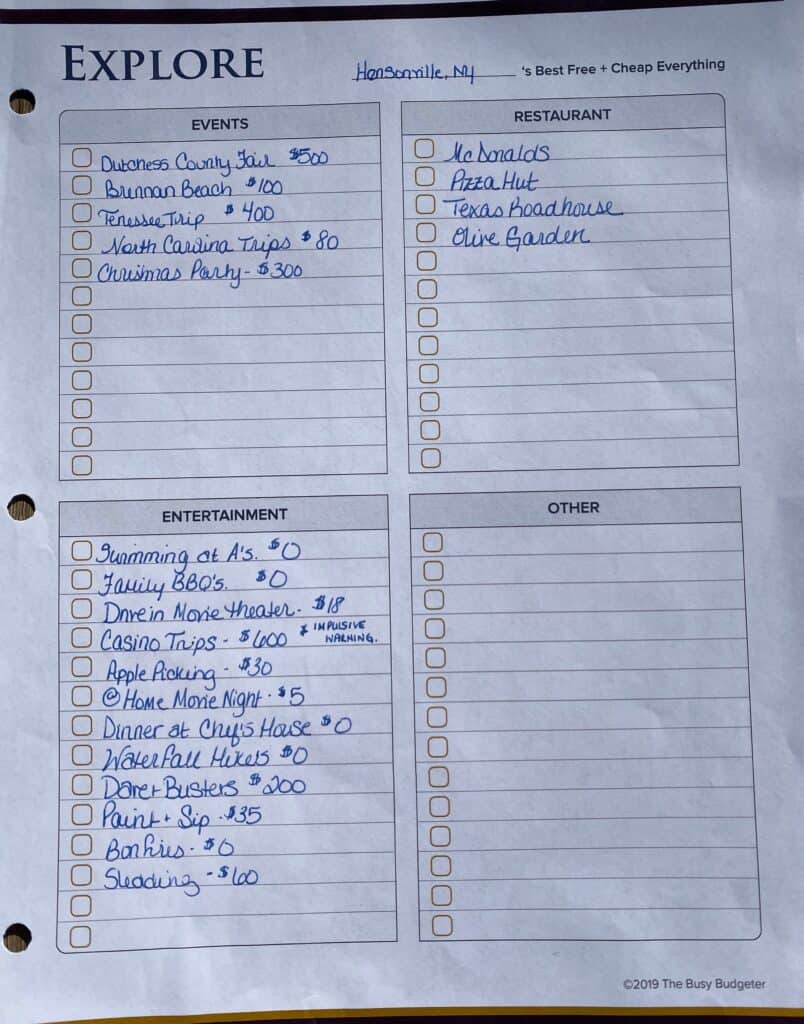 EXPLORE
Hensonville, NY 's Best Free + Cheap Everything
EVENTS
Dutchess County Fair $500
Brennan Beach $100
Tenessee Trip $400
North Carolina Trips $80
Christmas Party - $300
RESTAURANT
McDonalds
Pizza Hut
Texas Roadhouse
Olive Garden
ENTERTAINMENT
Swimming at A's. $0
Family BBQ's. $0
Drive in Movie theater - $18
Casino Trips - $600 * IMPULSIVE
WARNING.
Apple Picking - $30
@Home Movie Night - $5
Dinner at Chy's House $0
Waterfall Hikes $0
Dave + Busters $200
Paint + Sip - $35
Bonfires - $0
Sledding - $60
OTHER
©2019 The Busy Budgeter